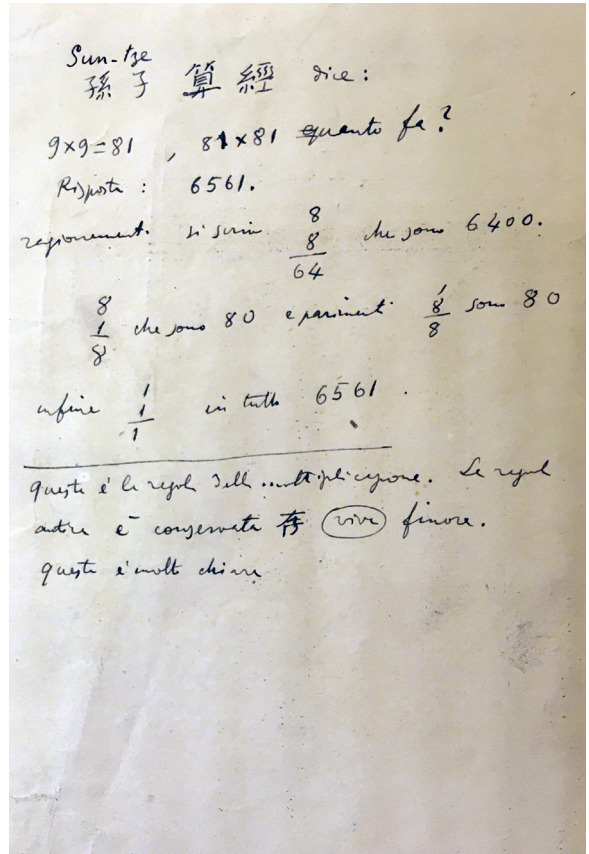 Sun-tze
孫子 算經 dice:
9×9=81 , 81×81 quanto fa?
Risposta : 6561.
ragionamento. si scrive 8 8 64 che sono 6400.
8 1 8 che sono 80 e parimenti 1 8 8 sono 80
infine 1 1 1 in tutto 6561.
Questa è la regola della moltiplicazione. La regola
antica è conservata 存 viva finora.
questo è molto chiaro